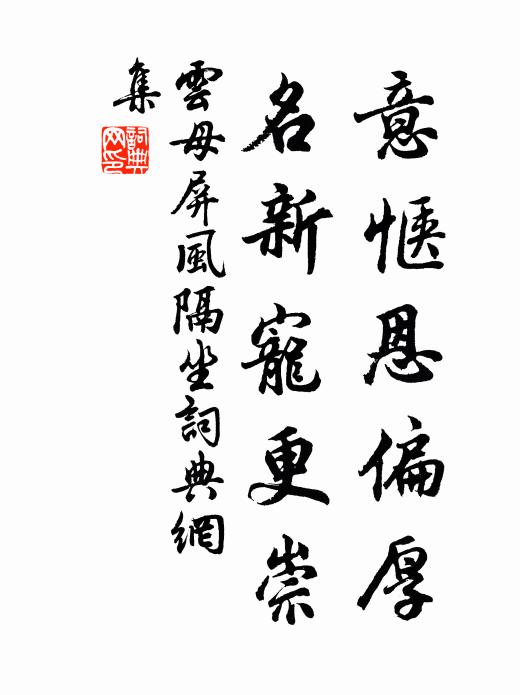 意愜恩偏厚
名新寵更崇
雲母屏風隔坐詞典網
集
詞典網印